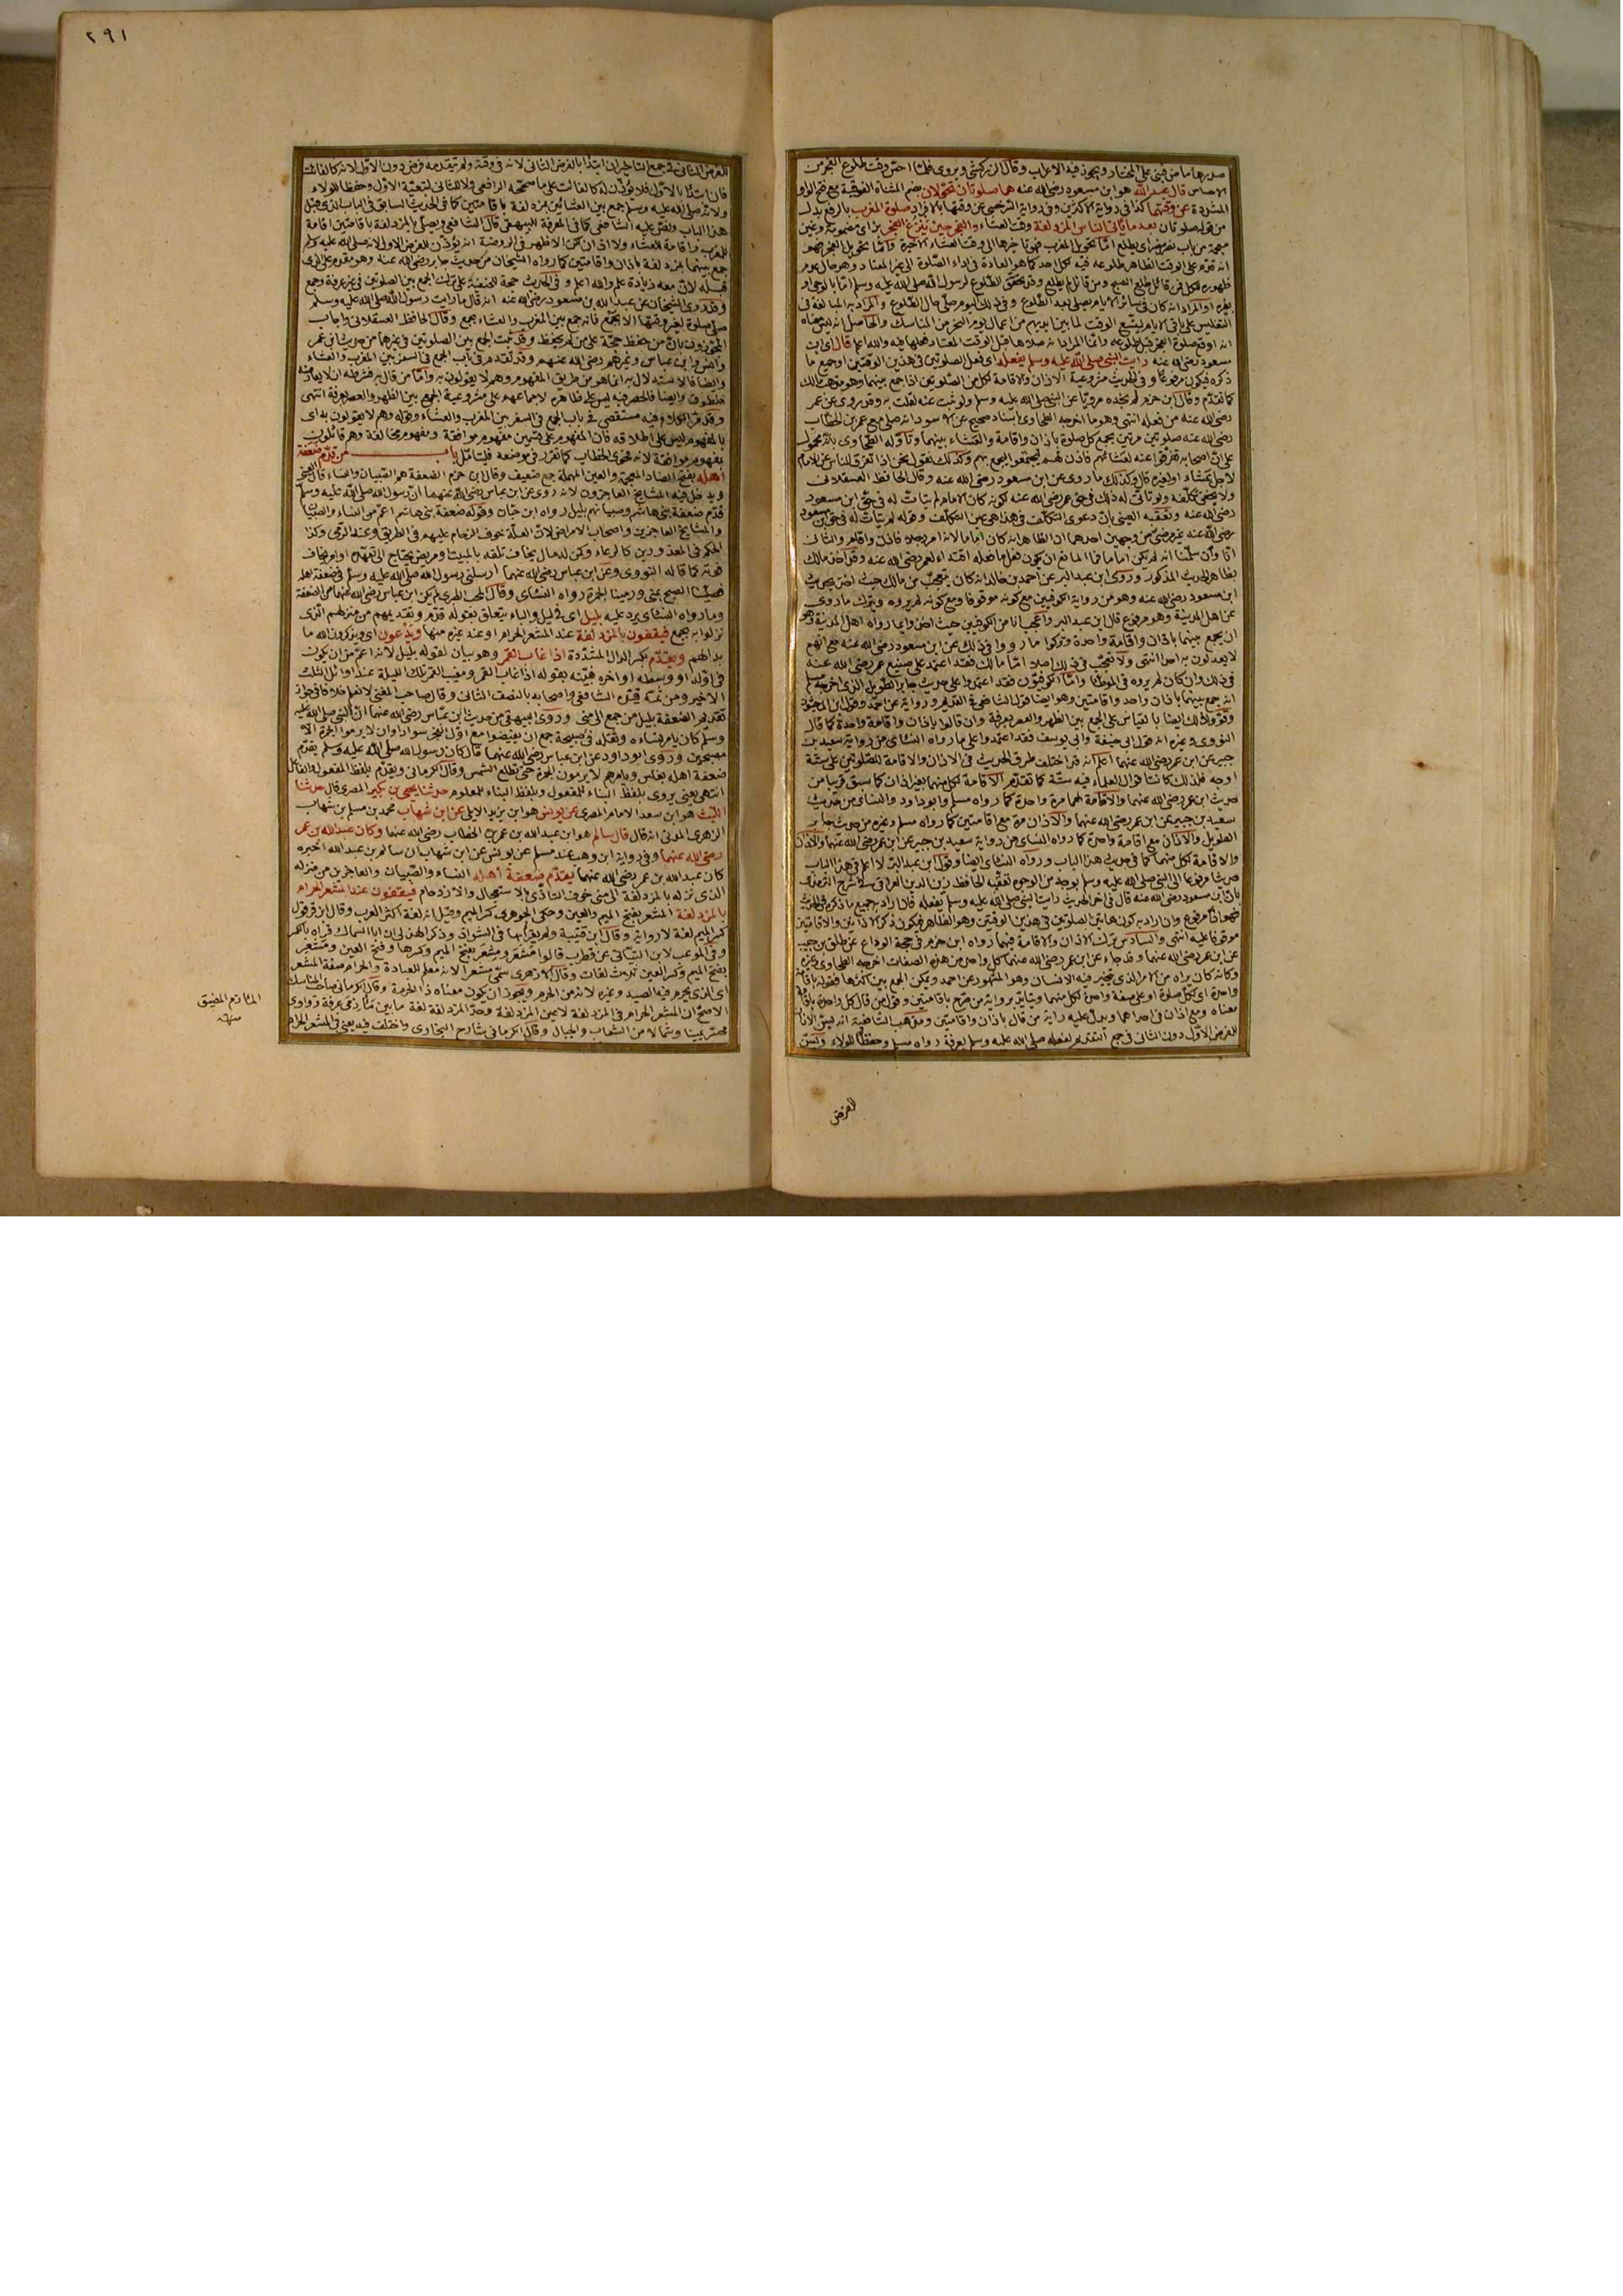 صدرها ما من فتى على المختار ويجوز فيه الاعراب وقال الزركشي ويروى فلما احس وقت طلوع الفجر من
الاحساس قال عبد الله هو ابن مسعود رضي الله عنه هما صلوتان تحولان بضم المثناة الفوقية مع فتح الواو
المشددة عن وقتهما كذا في رواية الاكثرين وفي رواية السرخسي عن وقتها بالافراد صلوة المغرب بالرفع بدل
من قوله صلوتان بعد ما يأتى الناس المزدلفة وقت العشاء والفجر حين يبزغ الفجر بزاى مضمومة وغين
معجمة من باب نصر ينصر اى يطلع اما تحويل المغرب فهو تاخيرها الى وقت العشاء الاخيرة واما تحويل الفجر فهو
انه قدم على الوقت الظاهر طلوعه فيه لكل احد كما هو العادة في اداء الصلوة الى غير المعتاد وهو حال عدم
ظهوره للكل فمن قائل طلع الصبح ومن قائل لم يطلع وقد تحقق الطلوع لرسول الله صلى الله عليه وسلم اما بالوحى او
بغيره او المراد انه كان في سائر الايام يصلى بعد الطلوع وفي ذلك اليوم صلى حال الطلوع والمراد به المبالغة في
التغليس على باقى الايام ليتسع الوقت لما بين ايديهم من اعمال يوم النحر من المناسك والحاصل انه ليس معناه
انه اوقع صلوة الفجر قبل طلوعه وانما المراد انه صلاها قبل الوقت المعتاد فعلها فيه والله اعلم قال اى ابن
مسعود رضي الله عنه رايت النبي صلى الله عليه وسلم يفعله اى فعل الصلوتين في هذين الوقتين او جميع ما
ذكره فيكون مرفوعا وفي الحديث مشروعية الاذان والاقامة لكل من الصلوتين اذا جمع بينهما وهو مذهب مالك
كما تقدم وقال ابن حزم لم نجده مرويا عن النبي صلى الله عليه وسلم ولو ثبت عنه لقلت به وقد روى عن عمر
رضي الله عنه من فعله انتهى وهو ما اخرجه الطحاوى باسناد صحيح عن الاسود انه صلى مع عمر بن الخطاب
رضي الله عنه صلوتين مرتين بجمع كل صلوة باذان واقامة والعشاء بينهما وتأوله الطحاوى بانه محمول
على ان اصحابه تفرقوا عنه لعشائهم فاذن لهم ليجتمعوا ليجمع بهم وكذلك نقول نحن اذا تفرق الناس عن الامام
لاجل عشاء او لغيره قال وكذلك ما روى عن ابن مسعود رضي الله عنه وقال الحافظ العسقلانى
ولا يخفى تكلفه ولو تأتى له ذلك في حق عمر رضي الله عنه لكونه كان الامام لم يتأت له في حق ابن مسعود
رضي الله عنه وتعقبه العيني بان دعوى التكلف في هذا هي عين التكلف وقوله لم يتأت له في حق ابن مسعود
رضي الله عنه غير مرضى من وجهين احدهما ان الظاهر انه كان اماما لانه امر رجلا فاذن واقام والثانى
انا وان سلمنا انه لم يكن اماما فما المانع ان يكون فعل ما فعله اقتداء لعمر رضي الله عنه وقد اخذ مالك
بظاهر الحديث المذكور وروى ابن عبد البر عن احمد بن خالد انه كان يتعجب من مالك حيث اخذ بحديث
ابن مسعود رضي الله عنه وهو من رواية الكوفيين مع كونه موقوفا ومع كونه لم يروه وترك ما روى
عن اهل المدينة وهو مرفوع قال ابن عبد البر واعجب انا من الكوفيين حيث اخذوا بما رواه اهل المدينة وهو
ان يجمع بينهما باذان واقامة واحدة وتركوا ما رووا في ذلك عن ابن مسعود رضي الله عنه مع انهم
لا يعدلون به احدا انتهى ولا تعجب في ذلك اصلا اما مالك فقد اعتمد على صنيع عمر رضي الله عنه
في ذلك وان كان لم يروه في الموطأ واما الكوفيون فقد اعتمدوا على حديث جابر الطويل الذى اخرجه مسلم
انه جمع بينهما باذان واحد واقامتين وهو ايضا قول الشافعى في القديم ورواية عن احمد وقول ابن الماجشون
وقووا ذلك ايضا بالقياس على الجمع بين الظهر والعصر بعرفة وان قالوا باذان واقامة واحدة كما قال
النووى وغيره انه قول ابي حنيفة وابي يوسف فقد اعتمدوا على ما رواه النسائى من رواية سعيد بن
جبير عن ابن عمر رضي الله عنهما اعلم انه قد اختلف طرق الحديث في الاذان والاقامة للصلوتين على ستة
اوجه فلذلك كانت اقوال العلماء فيه ستة كما تقدم الاقامة لكل منهما بغير اذان كما سبق قريبا من
حديث ابن عمر رضي الله عنهما والاقامة لهما مرة واحدة كما رواه مسلم وابو داود والنسائى من حديث
سعيد بن جبير عن ابن عمر رضي الله عنهما والاذان مرة مع اقامتين كما رواه مسلم وغيره من حديث جابر
الطويل والاذان مع اقامة واحدة كما رواه النسائى من رواية سعيد بن جبير عن ابن عمر رضي الله عنهما والاذان
والاقامة لكل منهما كما في حديث هذا الباب ورواه النسائى ايضا وقول ابن عبد البر لا اعلم في هذا الباب
حديثا مرفوعا الى النبي صلى الله عليه وسلم بوجه من الوجوه تعقبه الحافظ زين الدين العراقى في شرح الترمذى
بان ابن مسعود رضي الله عنه قال في اخر الحديث رايت النبي صلى الله عليه وسلم يفعله فان اراد به جميع ما ذكره في الحديث
فهو اذا مرفوع وان اراد به كون هاتين الصلوتين في هذين الوقتين وهو الظاهر فيكون ذكر الاذانين والاقامتين
موقوفا عليه انتهى والسادس ترك الاذان والاقامة فيهما رواه ابن حزم في حجة الوداع عن طلق بن حبيب
عن ابن عمر رضي الله عنهما وقد جاء عن ابن عمر رضي الله عنهما كل واحد من هذه الصفات اخرجه الطحاوى وغيره
وكانه كان يراه من الامر الذى يتخير فيه الانسان وهو المشهور عن احمد ويمكن الجمع بين اكثرها فقوله باقامة
واحدة اى لكل صلوة او على صفة واحدة لكل منهما ويتأيد برواية من صرح باقامتين وقول من قال كل واحدة باقامة
معناه ومع اذان في احداهما ويدل عليه رواية من قال باذان واقامتين ومذهب الشافعية انه يسن الاذان
للفرض الاول دون الثانى في جمع التقديم لفعله صلى الله عليه وسلم بعرفة رواه مسلم وحفظا للولاء ويسن
للفرض
٢٩١
للفرض الثانى في جمع التاخير ان ابتدأ بالفرض الثانى لانه في وقته ولم يتقدمه فرض دون الاول لانه كالفائت
فان ابتدأ بالاول فلا يؤذن له كالفائت على ما صححه الرافعى ولا للثانى لتبعية الاول وحفظا للولاء
ولانه صلى الله عليه وسلم جمع بين العشائين بمزدلفة باقامتين كما في الحديث السابق في الباب الذى قبل
هذا الباب ونص عليه الشافعى كما في المعرفة للبيهقى قال الشافعى ويصلى بالمزدلفة باقامتين اقامة
للمغرب واقامة للعشاء ولا اذان لكن الاظهر في الروضة انه يؤذن للفرض الاول لانه صلى الله عليه وسلم
جمع بينهما بمزدلفة باذان واقامتين كما رواه الشيخان من حديث جابر رضي الله عنه وهو مقدم على الذى
قبله لان معه زيادة علم والله اعلم وفي الحديث حجة للحنفية على ترك الجمع بين الصلوتين في غير عرفة وجمع
وقد روى الشيخان عن عبد الله بن مسعود رضي الله عنه انه قال ما رايت رسول الله صلى الله عليه وسلم
صلى صلوة لغير وقتها الا بجمع فانه جمع بين المغرب والعشاء بجمع وقال الحافظ العسقلانى واجاب
المجوزون بان من حفظ حجة على من لم يحفظ وقد ثبت الجمع بين الصلوتين في غيرهما من حديث ابن عمر
وانس وابن عباس وغيرهم رضي الله عنهم وقد تقدم في باب الجمع في السفر بين المغرب والعشاء
وايضا فالاستدلال به انما هو من طريق المفهوم وهم لا يقولون به واما من قال به فشرطه ان لا يعارضه
منطوق وايضا فالحصر فيه ليس على ظاهره لاجماعهم على مشروعية الجمع بين الظهر والعصر بعرفة انتهى
وقد مر الكلام فيه مستقصى في باب الجمع في السفر بين المغرب والعشاء وقوله وهم لا يقولون به اى
بالمفهوم ليس على اطلاقه فان المفهوم على قسمين مفهوم موافقة ومفهوم مخالفة وهم قائلون
بمفهوم موافقة لانه فحوى الخطاب كما تقرر في موضعه فليتأمل باب من قدم ضعفة
اهله بفتح الضاد المعجمة والعين المهملة جمع ضعيف وقال ابن حزم الضعفة هم الصبيان والنساء قال العينى
ويدخل فيه المشايخ العاجزون لانه روى عن ابن عباس رضي الله عنهما ان رسول الله صلى الله عليه وسلم
قدم ضعفة بنى هاشم وصبيانهم بليل رواه ابن حبان وقوله ضعفة بنى هاشم اعم من النساء والصبيان
والمشايخ العاجزين واصحاب الامراض لان العلة خوف الزحام عليهم في الطريق وعند الرمى وكذا
الحكم في المعذورين كالرعاء ومن له مال يخاف تلفه بالمبيت او مريض يحتاج الى تعهده او امر يخاف
فوته كما قاله النووى وعن ابن عباس رضي الله عنهما ارسلنى رسول الله صلى الله عليه وسلم في ضعفة اهله
فصلينا الصبح بمنى ورمينا الجمرة رواه النسائى وقال المحب الطبرى لم يكن ابن عباس رضي الله عنهما من الضعفة
وما رواه النسائى يرد عليه بليل اى في ليل والباء يتعلق بقوله قدم وتقديمهم من منزلهم الذى
نزلوا به بجمع فيقفون بالمزدلفة عند المشعر الحرام او عند غيره منها ويدعون اى ويذكرون الله ما
بدا لهم ويقدم بكسر الدال المشددة اذا غاب القمر وهو بيان لقوله بليل لانه اعم من ان يكون
في اوله او وسطه او اخره فبينه بقوله اذا غاب القمر ومغيب القمر تلك الليلة عند اوائل الثلث
الاخير ومن ثمه قيده الشافعى واصحابه بالنصف الثانى وقال صاحب المغنى لا نعلم خلافا في جواز
تقديم الضعفة بليل من جمع الى منى وروى البيهقى من حديث ابن عباس رضي الله عنهما ان النبي صلى الله عليه
وسلم كان يامر نساءه وثقله في صبيحة جمع ان يفيضوا مع اول الفجر بسواد وان لا يرموا الجمرة الا
مصبحين وروى ابو داود عن ابن عباس رضي الله عنهما قال كان رسول الله صلى الله عليه وسلم يقدم
ضعفة اهله بغلس ويامرهم لا يرمون الجمرة حتى تطلع الشمس وقال الكرمانى ويقدم بلفظ المفعول والفاعل
انتهى يعنى يروى بلفظ البناء للمفعول وبلفظ البناء للمعلوم حدثنا يحيى بن بكير المصرى قال حدثنا
الليث هو ابن سعد الامام المصرى عن يونس هو ابن يزيد الايلى عن ابن شهاب محمد بن مسلم بن شهاب
الزهرى المدنى انه قال قال سالم هو ابن عبد الله بن عمر بن الخطاب رضي الله عنهما وكان عبد الله بن عمر
رضي الله عنهما وفي رواية ابن وهب عند مسلم عن يونس عن ابن شهاب ان سالم بن عبد الله اخبره
كان عبد الله بن عمر رضي الله عنهما يقدم ضعفة اهله النساء والصبيان والعاجزين من منزله
الذى نزله بالمزدلفة الى منى خوف التأذى بالاستعجال والازدحام فيقفون عند المشعر الحرام
بالمزدلفة المشعر بفتح الميم والعين وحكى الجوهرى كسر الميم وقيل انه لغة اكثر العرب وقال ابن قرقول
كسر الميم لغة لا رواية وقال ابن قتيبة ولم يقرأ بها في الشواذ وذكر الهذلى ان ابا السماك قرأه بالكسر
وفي الموعب لابن التيانى عن قطرب قالوا مشعر ومشعر بفتح الميم وكسرها وفتح العين ومشعر
بفتح الميم وكسر العين ثلاث لغات وقال الازهرى سمى مشعرا لانه معلم للعبادة والحرام صفة المشعر
اى الذى يحرم فيه الصيد وغيره لانه من الحرم ويجوز ان يكون معناه ذا الحرمة وقال الكرمانى صاحب المناسك
الاصح ان المشعر الحرام في المزدلفة لا عين المزدلفة وحد المزدلفة لغة ما بين مأزمى عرفة ووادى
محسر يمينا وشمالا من الشعاب والجبال وقال الكرمانى شارح البخارى واختلف فيه يعنى في المشعر الحرام
المأزم المضيق
منه